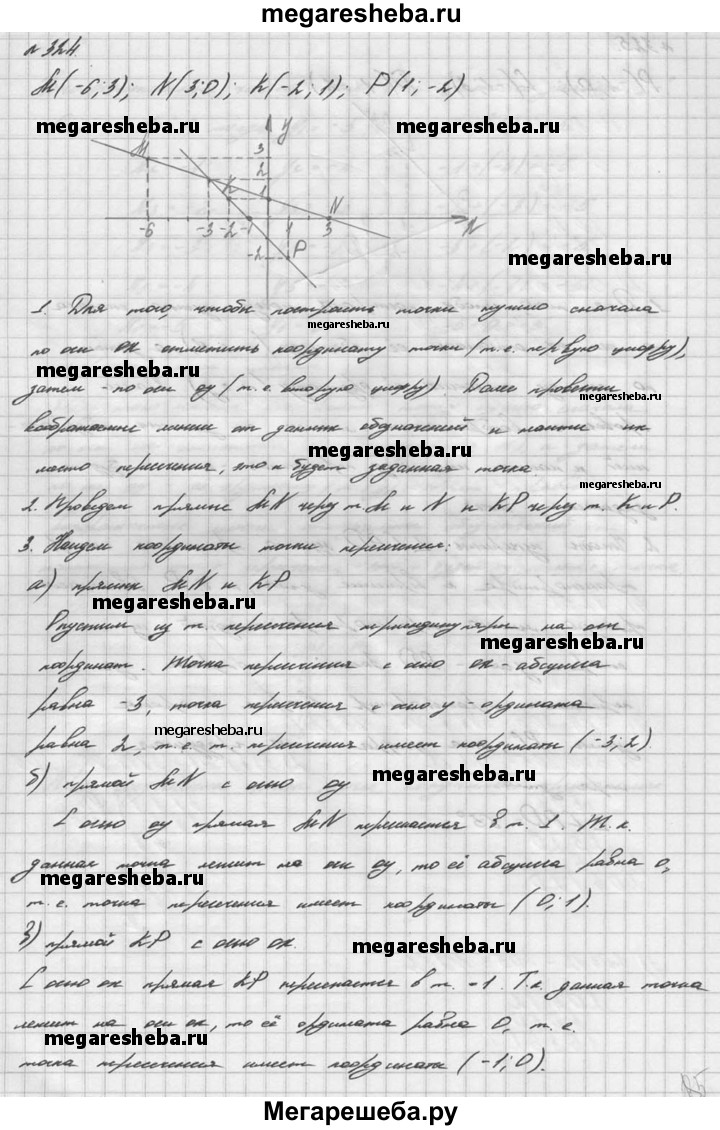 megaresheba.ru
№324.
M(-6;3); N(3;0); K(-2;1); P(1;-2)
megaresheba.ru megaresheba.ru
y
M 3
2
K 1
N
-6 -3 -2 -1 1 3
-2 P
megaresheba.ru
1. Для того, чтобы построить точки нужно сначала
megaresheba.ru
по оси ох отметить координату точки (т.е. первую цифру),
megaresheba.ru
затем - по оси оу (т.е. вторую цифру). Далее провести
megaresheba.ru
воображаемые линии от данных обозначений и найти их
megaresheba.ru
место пересечения, это и будет заданная точка
megaresheba.ru
2. Проведем прямые MN через т. M и N и KP через т. K и P.
3. Найдем координаты точки пересечения:
а) прямых MN и KP
megaresheba.ru
Опустим из т. пересечения перпендикуляры на оси
megaresheba.ru
координат. Точка пересечения с осью ох - абсцисса
megaresheba.ru
равна -3, точка пересечения с осью у - ордината
megaresheba.ru
равна 2, т.е. т. пересечения имеет координаты (-3;2)
б) прямой MN с осью оу
megaresheba.ru
С осью оу прямая MN пересекается в т. 1. Т.к.
данная точка лежит на оси оу, то её абсцисса равна 0,
megaresheba.ru
т.е. точка пересечения имеет координаты (0;1).
в) прямой KP с осью ох.
megaresheba.ru
С осью ох прямая KP пересекается в т. -1. Т.к. данная точка
лежит на оси ох, то её ордината равна 0, т.е.
megaresheba.ru
точка пересечения имеет координаты (-1;0).
Мегарешеба.ру